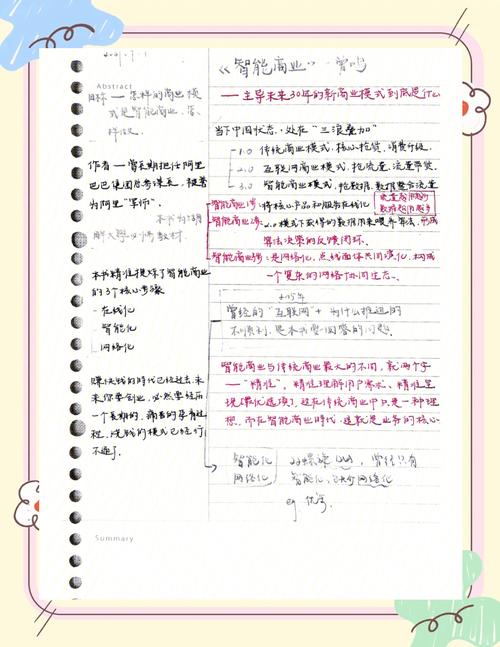 Abstract
目标——怎样的商业模
式是智能商业，怎
样做
作者——曾長期担任阿里
巴巴集团总参谋長，被誉
为阿里"军师"．
本书为湖
畔大學必修教材
本书精准提炼了智能商业
的3个核心步骤
- 在线化
- 智能化
- 网络化
赚快钱的時代已经过去，未
来你要创业，必然要经历
一个長期的、痛苦的孕育过
程，烧钱的模式已经行
不通了．
Summary
《智能商业》—曾鸣
——主导未来30年的新商业模式到底是什么
当下中国状态，处在"三浪叠加"
1.0 传统商业模式，核心抢货，消费升级．
2.0 互联网商业模式，抢流量，流量带货．
3.0 智能商业模式，抢数据，数据整合流量
智能商业1步：将核心产品和服务在线化
流量起用起步
数据起用起步
智能商业2步：2.0模式下获得的数据用来喂养算法，形成
算法决策的反馈闭环．
智能商业3步：是网络化，点线面体共同演化，构成
一个复杂的网络协同生态．
2015年
曾经的"互联网"+ 为什么推进的
不顺利，是本书要回答的问题．
智能商业与传统商业最大的不同，就两个字
——"精准"．精准理解用户需求、精准呈
现最优选项，这在传统商业中只是一种理
想，而在智能商业時代，这就是业务的核心
智能化
网络化
双螺旋 曾经只有
智能化，缺少网络化
eg 优步．